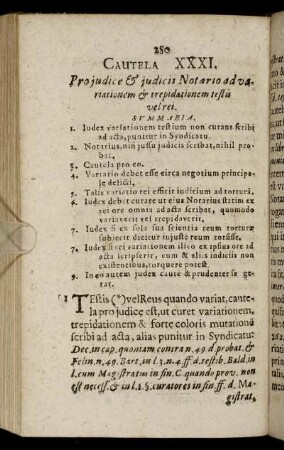 280
CAUTELA XXXI.
Pro judice & judicii Notario ad va-
riationem & trepidationem testis
vel rei.
SVMMARIA.
1. Iudex variationem testium non curans scribi
ad acta, punitur in Syndicatu.
2. Notarius, nisi jussu judicis scribat, nihil pro-
bat.
3. Cautela pro eo.
4. Variatio debet esse circa negotium principa-
le delicti.
5. Talis variatio rei efficit iudicium ad torturā.
6. Iudex debet curare ut ejus Notarius statim ex
aut ore omnia ad acta scribat, quomodo
variaverit vel trepidaverit.
7. Iudex si ex sola sua scientia reum torturæ
subjecit dicitur injuste reum torsisse.
8. Iudex si rei variationem illico ex ipsius ore ad
acta scripserit, cum & aliis indiciis non
existentibus, torquere potest.
9. In eo autem judex caute & prudenter se ge-
rat.
1 TEstis (*) vel Reus quando variat, caute-
la pro judice est, ut curet variationem,
trepidationem & forte coloris mutationē
scribi ad acta, alias punitur in Syndicatu:
Dec. in cap. quoniam contra n. 49 d. probat. &
Felin. n. 49. Bart. in l. 3. n. 4. ff. d. testib. Bald. in
l. cum Magistratus in fin. C. quando prov. non
est necess. & in l. 1. §. curatores in fin. ff. d. Ma-
gistrat.